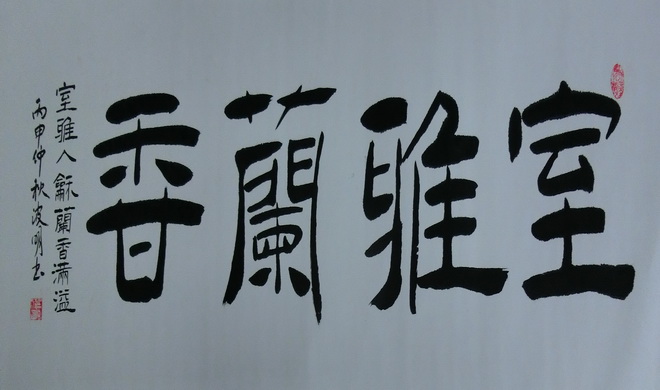 室雅蘭香
室雅人龢蘭香滿溢
丙申仲秋波明书